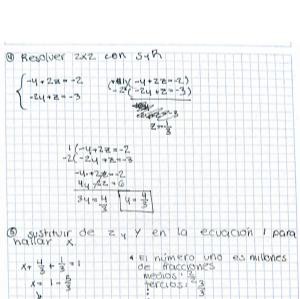 ④ Resolver 2x2 con S y R
-y+2z=-2
-2y+z=-3
(-y+2z=-2)
-2(-2y+z=-3)
z=-1/3
1(-y+2z=-2
-2(-2y+z=-3
-y+2z=-2
4y-2z=6
3y=4/3 y=4/3
⑤ sustituir de z y y en la ecuación 1 para
hallar x
x+4/3+1/3=1
x=1-5/3
* El número uno es millones
de fracciones
medios: 2/2
tercios: 3/3